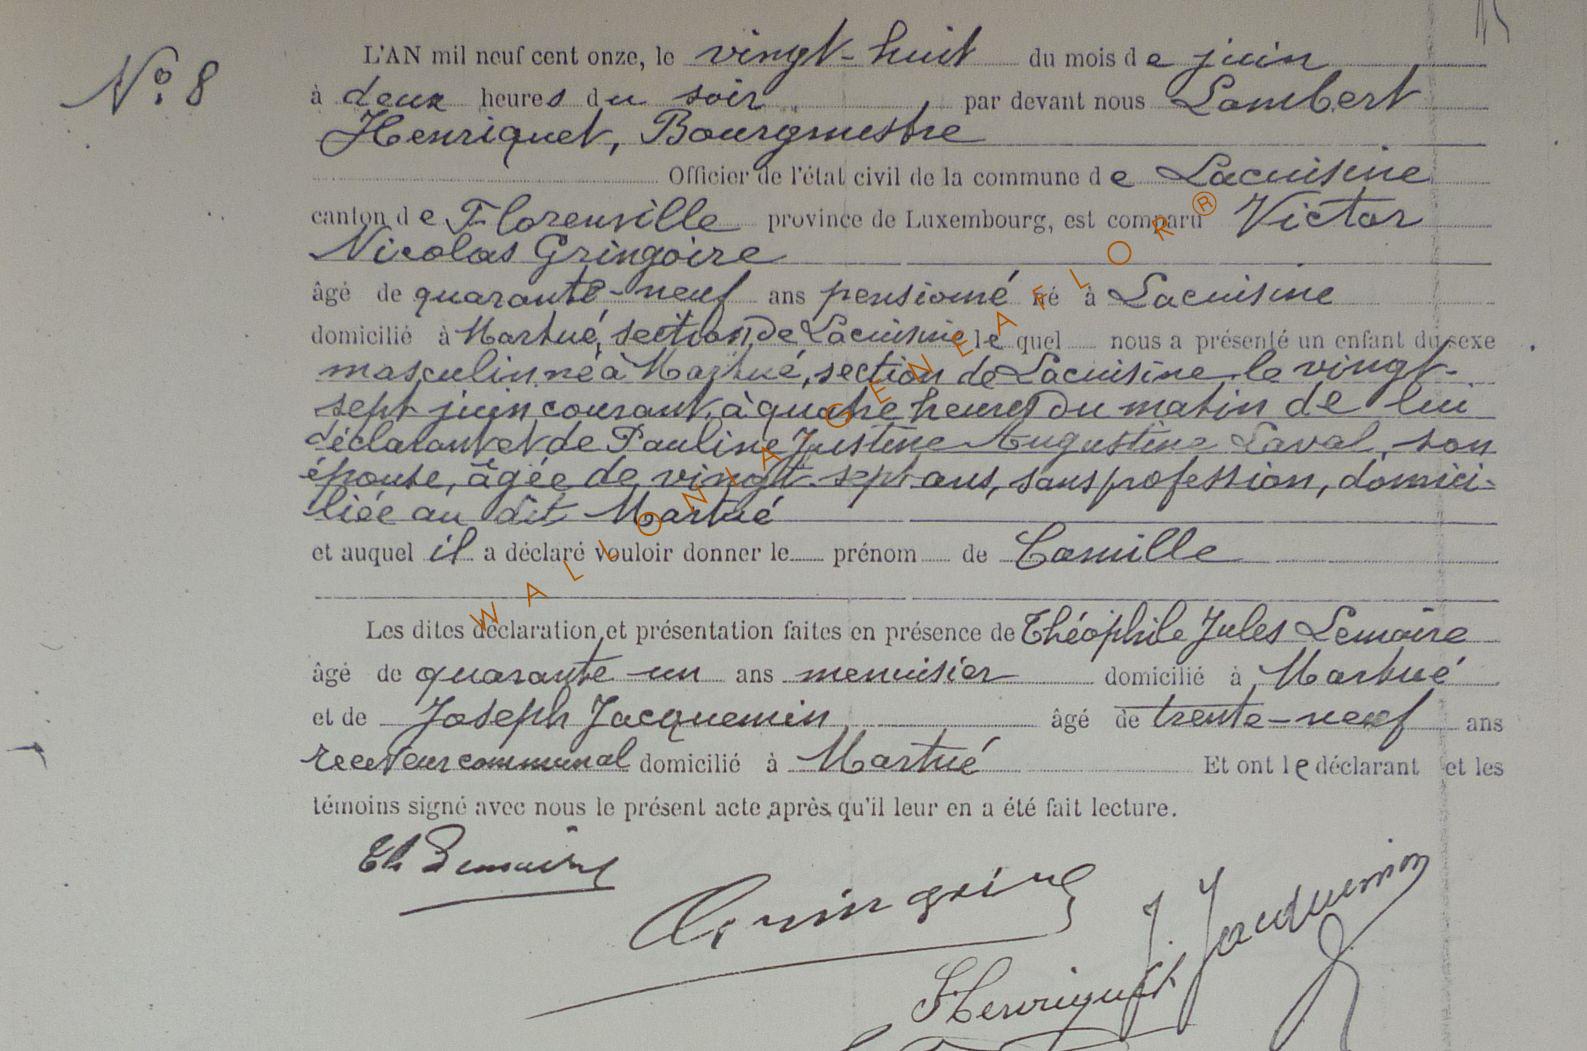 N° 8
L'AN mil neuf cent onze, le vingt-huit du mois de juin
à deux heures du soir par devant nous Lambert
Henriquet, Bourgmestre
Officier de l'état civil de la commune de Lacuisine
canton de Florenville province de Luxembourg, est comparu Victor
Nicolas Gringoire
âgé de quarante-neuf ans pensionné né à Lacuisine
domicilié à Martué, section de Lacuisine le quel nous a présenté un enfant du sexe
masculin né à Martué, section de Lacuisine le vingt-
sept juin courant, à quatre heures du matin de lui
déclarant et de Pauline Justine Augustine Laval, son
épouse, âgée de vingt-sept ans, sans profession, domici-
liée au dit Martué
et auquel il a déclaré vouloir donner le prénom de Camille
Les dites déclaration et présentation faites en présence de Théophile Jules Lemaire
âgé de quarante-un ans menuisier domicilié à Martué
et de Joseph Jacquemin âgé de trente-neuf ans
receveur communal domicilié à Martué Et ont le déclarant et les
témoins signé avec nous le présent acte après qu'il leur en a été fait lecture.
Th Lemaire
J. Jacquemin
Henriquet
WALLONIA GENEAFLOR®